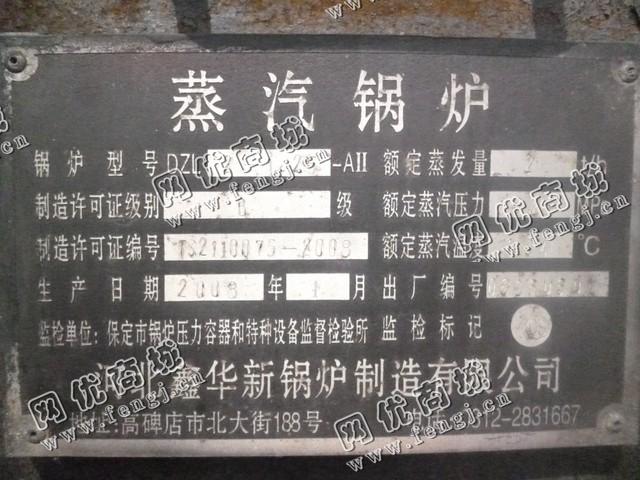 蒸汽锅炉
锅炉型号 DZL -AII 额定蒸发量 t/h
制造许可证级别 级 额定蒸汽压力
制造许可证编号 TS2110075-2009 额定蒸汽温度 ℃
生产日期 2008 年 1 月 出厂编号
监检单位: 保定市锅炉压力容器和特种设备监督检验所 监检标记
河北鑫华新锅炉制造有限公司
地址:高碑店市北大街188号 0312-2831667
网优商城
www.fengj.com
网优商城
www.fengj.com
网优商城
www.fengj.com
网优商城
www.fengj.com
网优商城
www.fengj.com